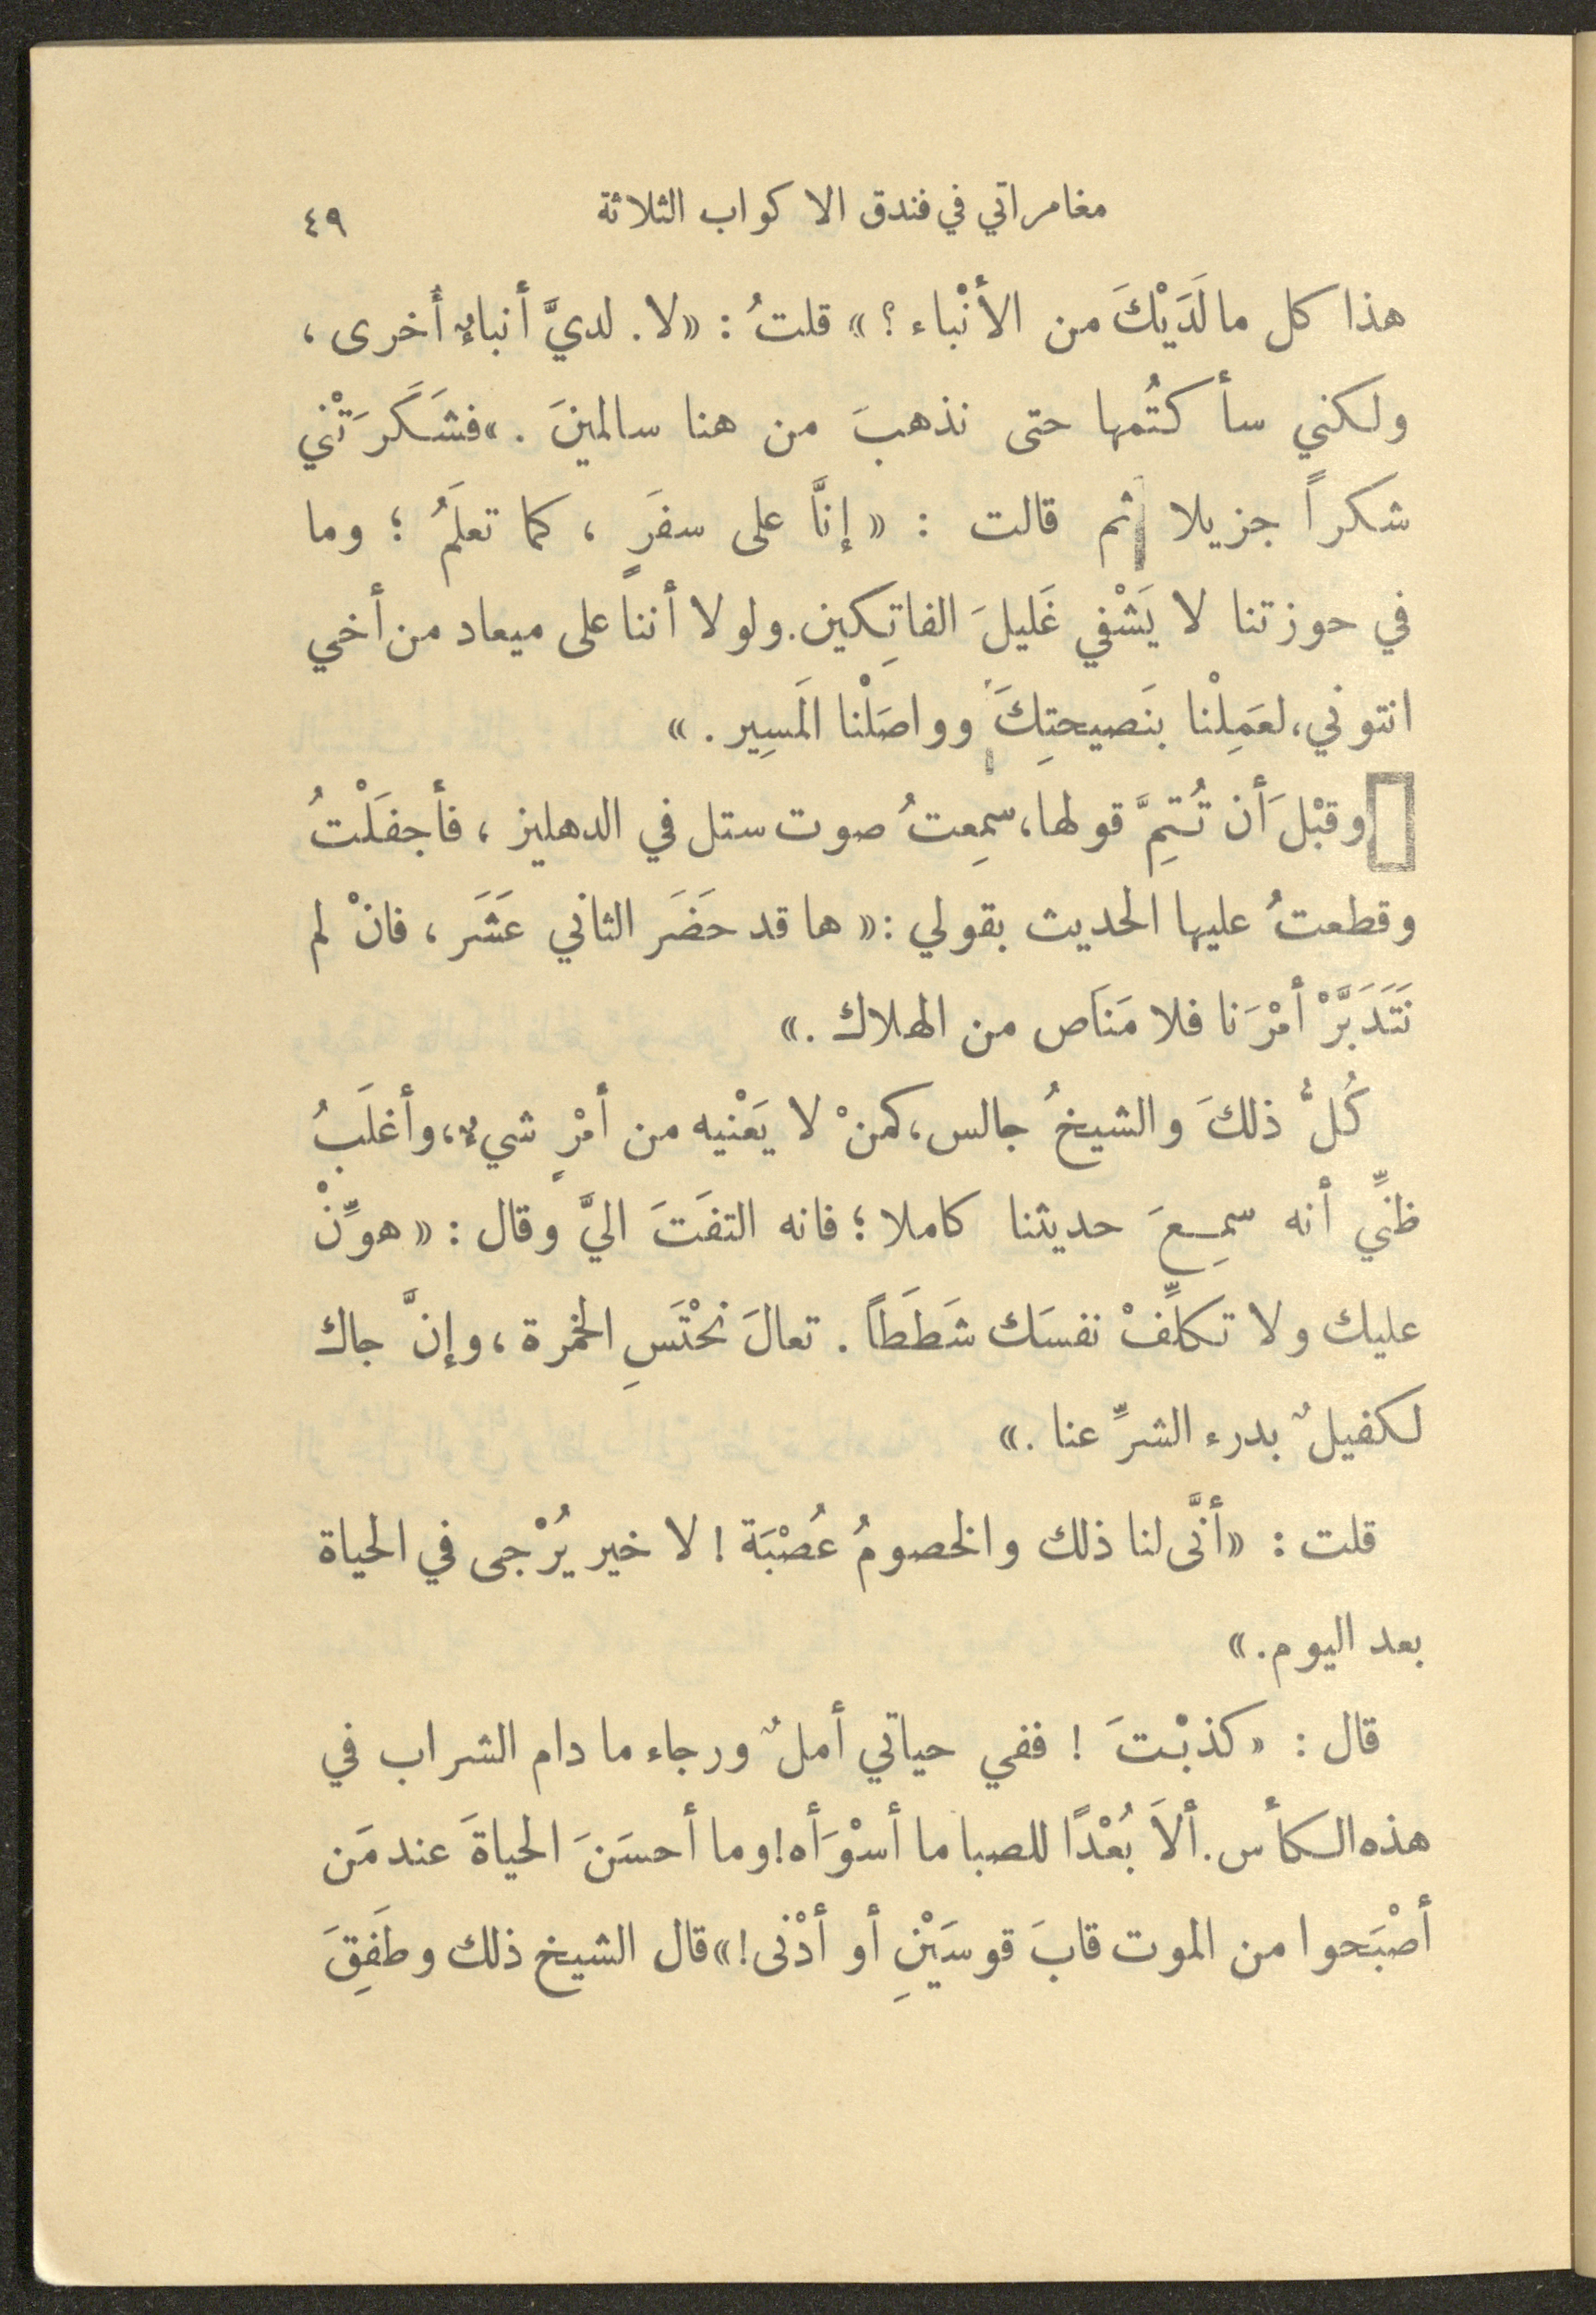 مغامراتي في فندق الاكواب الثلاثة ٤٩
هذا كل ما لَدَيْكَ من الأنْباء ؟ » قلتُ : « لا . لديَّ أنباءٌ أُخرى ،
ولكني سأكتُمها حتى نذهبَ من هنا سالمينَ . » فشَكَرَتْني
شكراً جزيلا ثم قالت : « إنَّا على سفَرٍ ، كما تعلَمُ ؛ وما
في حوزتنا لا يَشْفي غَليلَ الفاتِكين . ولولا أننا على ميعاد من أخي
انتوني ، لعَمِلْنا بنَصيحتِكَ وواصَلْنا المَسِير . »
وقبْلَ أن تُتِمَّ قولها ، سمِعتُ صوت ستل في الدهليز ، فأجفَلْتُ
وقطعتُ عليها الحديث بقولي : « ها قد حَضَر الثاني عَشَر ، فانْ لم
نَتَدَبَّرْ أمْرَنا فلا مَنَاص من الهلاك . »
كُلُّ ذلكَ والشيخُ جالس ، كمنْ لا يَعْنيه من أمْرٍ شيءٌ ، وأغلَبُ
ظنِّي أنه سمِعَ حديثنا كاملا ؛ فانه التفَتَ اليَّ وقال : « هوِّنْ
عليك ولا تكلِّفْ نفسَك شَطَطَاً . تعالَ نحْتَسِ الخمرة ، وإنَّ جاك
لكفيلٌ بدرء الشرِّ عنا . »
قلت : « أنَّى لنا ذلك والخصومُ عُصْبَة ! لا خير يُرْجى في الحياة
بعد اليوم . »
قال : « كذبْتَ ! ففي حياتي أملٌ ورجاء ما دام الشراب في
هذه الكأس . ألاَ بُعْدًا للصبا ما أسْوَأَه ! وما أحسَنَ الحياةَ عند مَن
أصْبَحوا من الموت قابَ قوسَيْنِ أو أدْنى ! » قال الشيخ ذلك وطَفِقَ